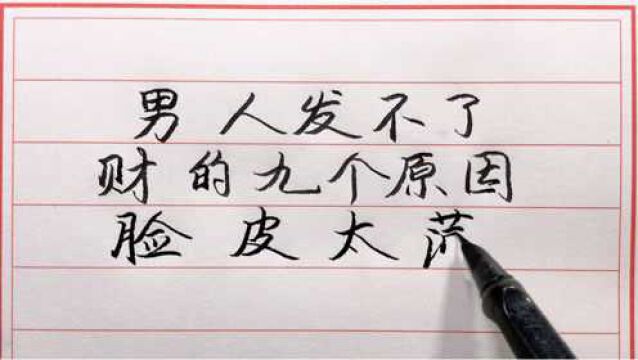 男人发不了
财的九个原因
脸皮太